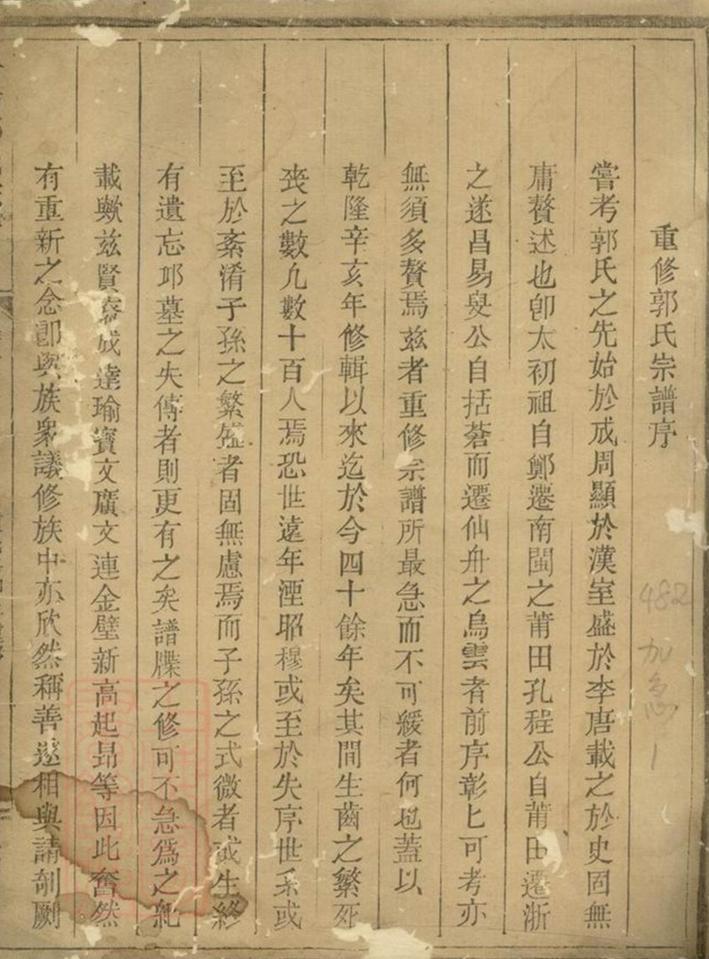 重修郭氏宗譜序
嘗考郭氏之先始於成周顯於漢室盛於李唐載之於史固無
庸贅述也卽太初祖自鄭遷南閩之莆田孔程公自莆田遷浙
之遂昌易叟公自括蒼而遷仙舟之烏雲者前序彰匕可考亦
無須多贅焉兹者重修宗譜所最急而不可緩者何也蓋以
乾隆辛亥年修輯以來迄於今四十餘年矣其間生齒之繁死
喪之數凢數十百人焉恐世遠年湮昭穆或至於失序世系或
至於紊淆子孫之繁盛者固無慮焉而子孫之式微者或生終
有遺忘邱墓之失傳者則更有之矣譜牒之修可不急爲之紀
載歟兹賢 成達瑜寳文廣文連金璧新高起昂等因此奮然
有重新之念卽與族衆議修族中亦欣然稱善遂相與請剞劂
482
加急1